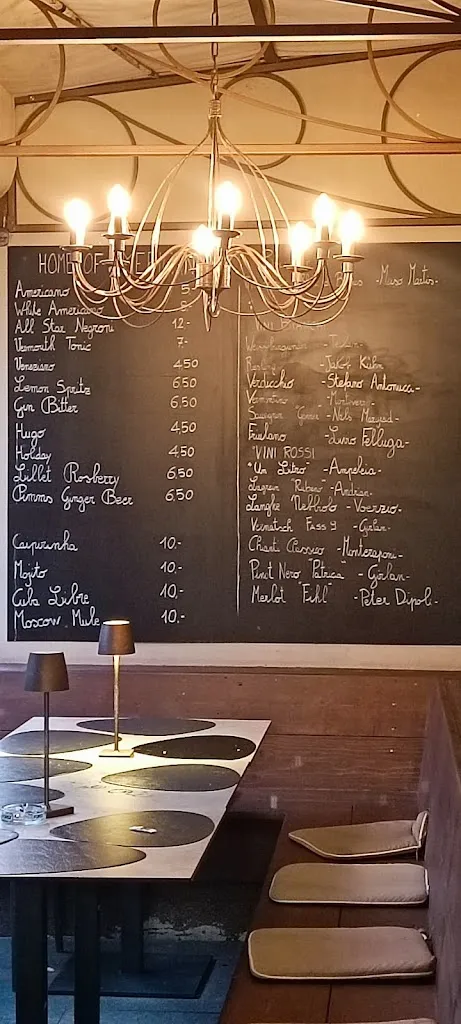 HOME OF
Americano 5-
White Americano
All Star Negroni 12.-
Vermouth Tonic 7-
Veneziano 4,50
Lemon Spritz 6,50
Gin Bitter 6,50
Hugo 4,50
Holday 4,50
Lillet Rosberry 6,50
Pimms Ginger Beer 6,50
Caipirinha 10.-
Mojito 10.-
Cuba Libre 10.-
Moscow Mule 10.-
-Maso Martis-
-Jakob Kühn
Verdicchio -Stefano Antonucci-
Friulano -Livio Felluga-
"VINI ROSSI
"Un Litro" -Ampeleia-
Lagrein "Rubeno" -Andrian-
Langhe Nebbiolo -Voerzio-
Vernatsch Fass 9 -Girlan-
Chianti Classico -Monteraponi-
Pinot Nero "Patricia" -Girlan-
Merlot "Fihl" -Peter Dipoli-